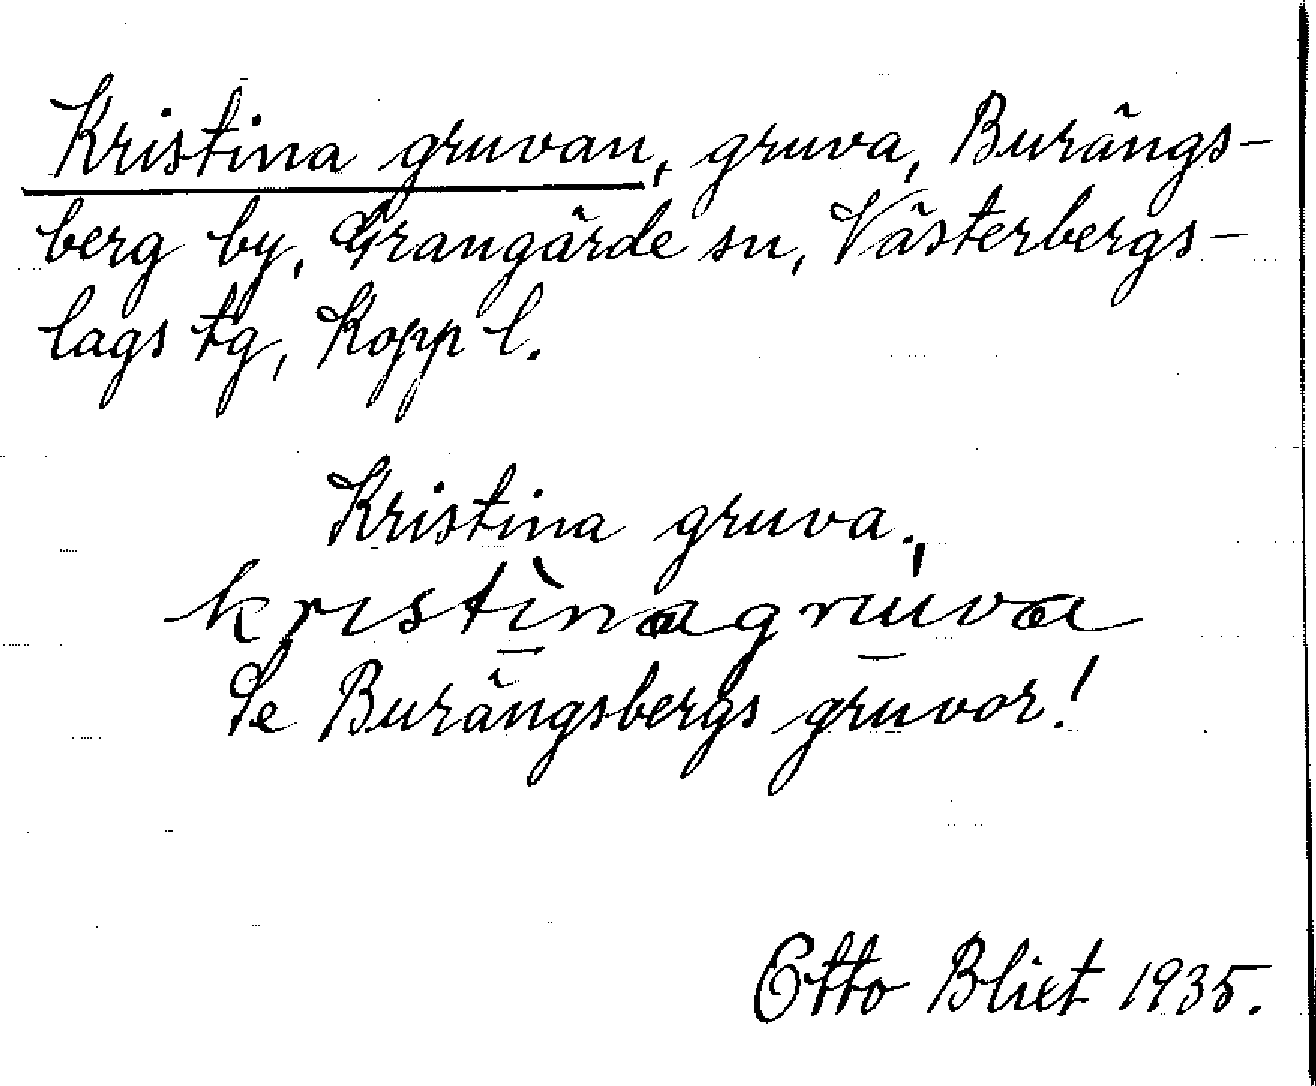 Kristina gruvan, gruva, Burängs-
berg by, Grangärde sn, Västerbergs-
lags tg, Kopp l.
Kristina gruva.,
kristìnagruva
Se Burängsbergs gruvor!
Otto Blixt 1935.